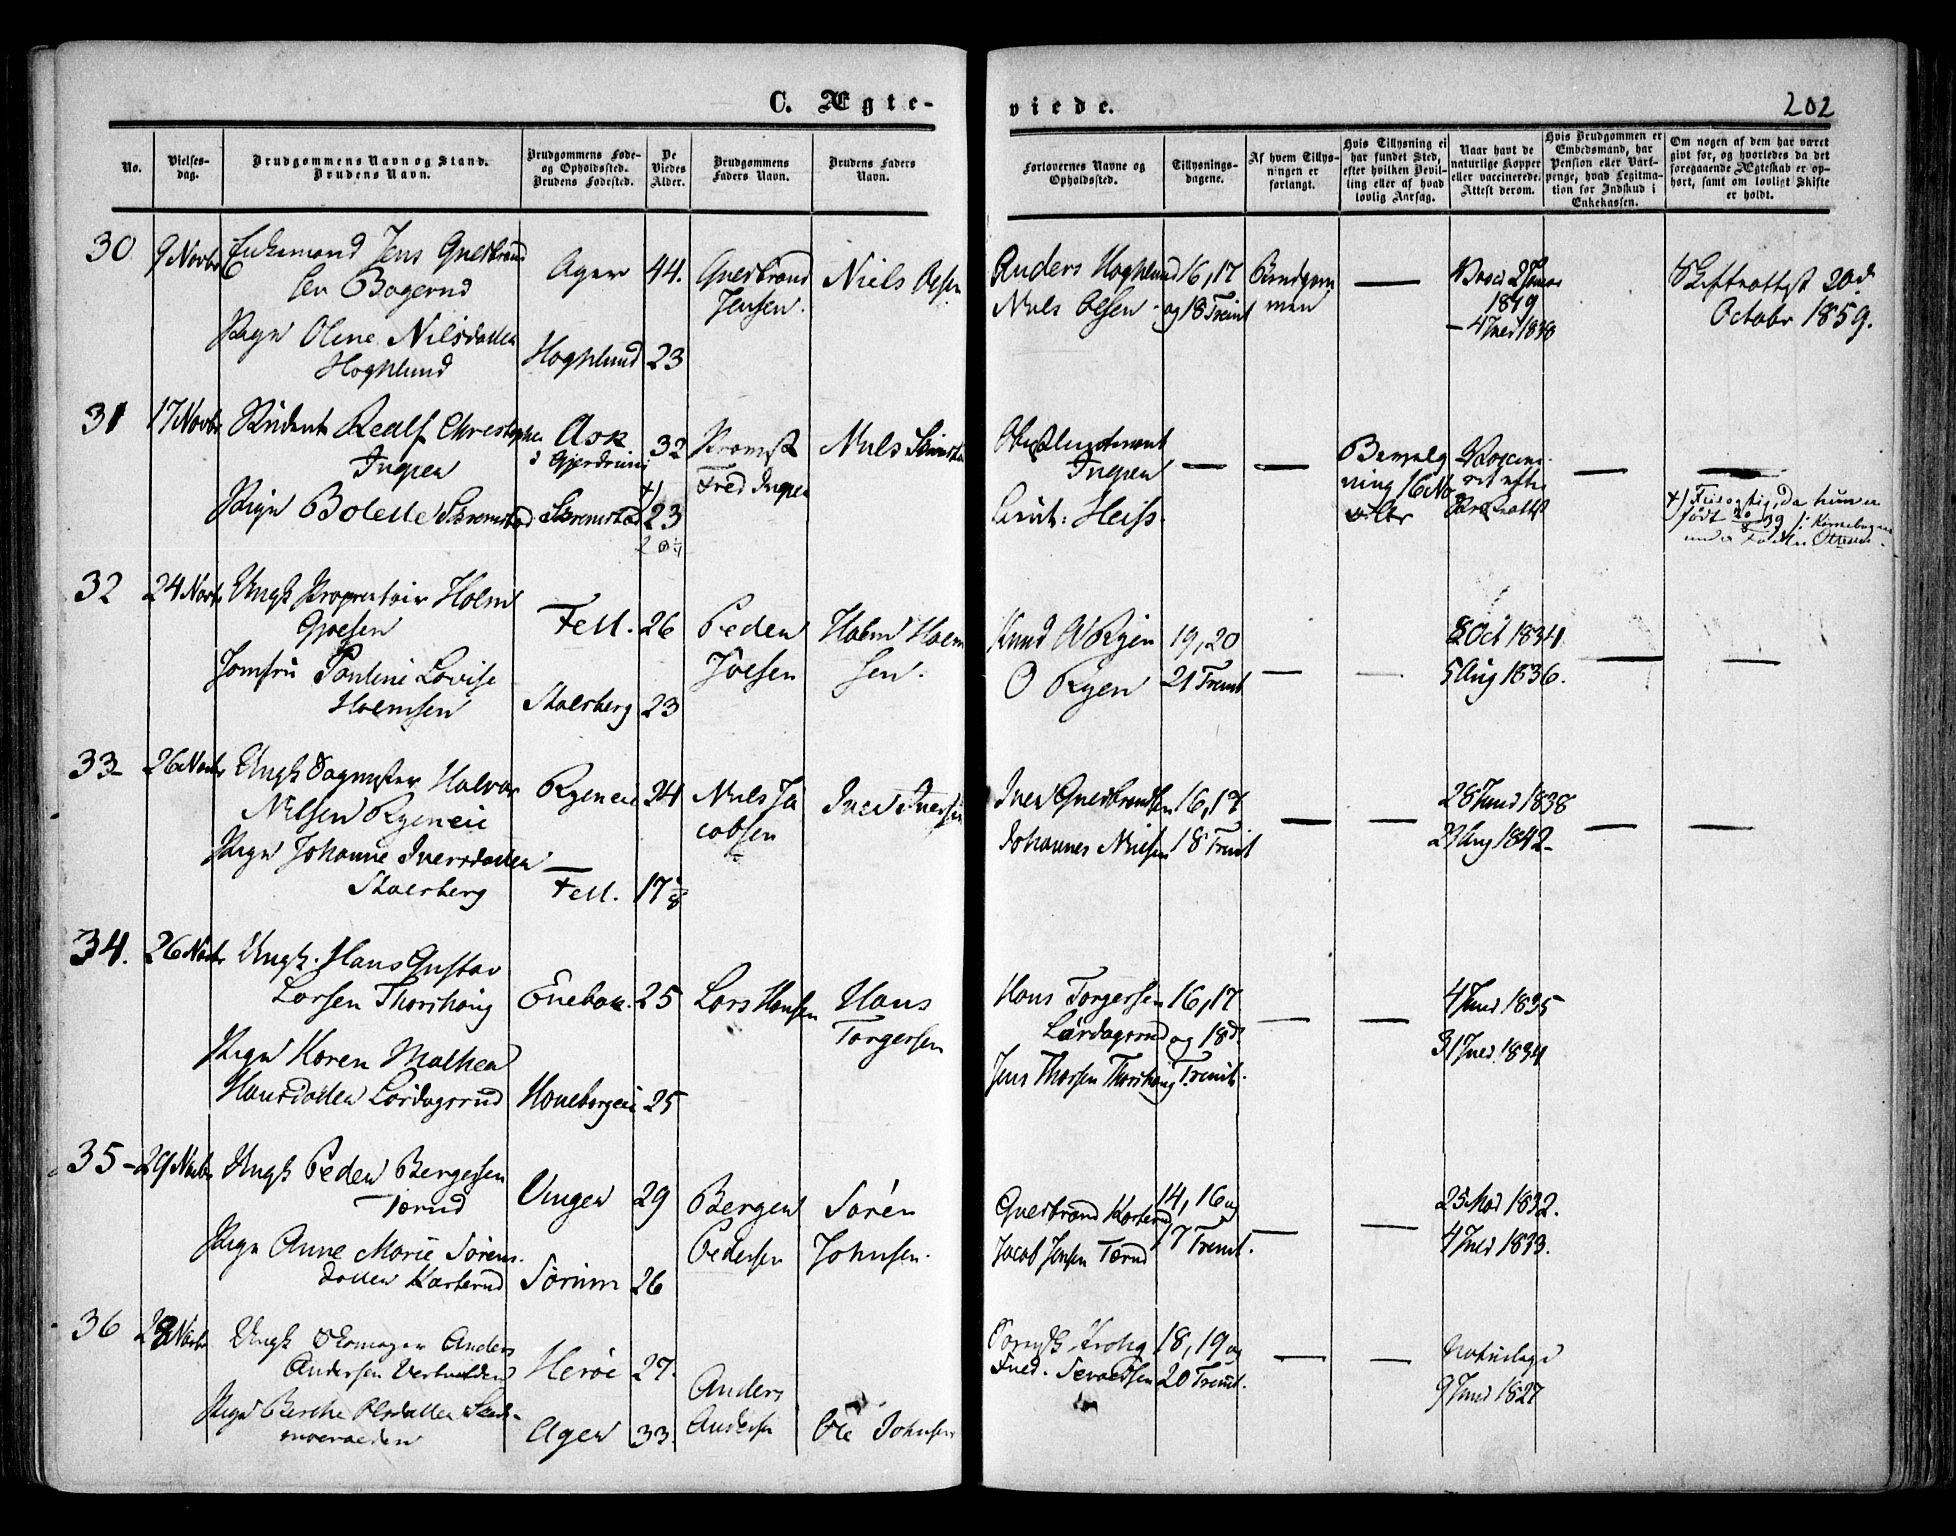 C. Ægte-
viede.
202
No.
Vielses-
dag.
Brudgommens Navn og Stand.
Brudens Navn.
Brudgommens Føde-
og Opholdssted.
Brudens Fødested.
De
Viedes
Alder.
Brudgommens
Faders Navn.
Brudens Faders
Navn.
Forlovernes Navne og
Opholdssted.
Tillysnings-
dagene.
Af hvem Tillys-
ningen er
forlangt.
Hvis Tillysning ei
har fundet Sted,
efter hvilken Bevil-
ling eller af hvad
lovlig Aarsag.
Naar havt de
naturlige Kopper
eller vaccinerede.
Attest derom.
Hvis Brudgommen er
Embedsmand, har
Pension eller Vart-
penge, hvad Legitima-
tion for Indskud i
Enkekassen.
Om nogen af dem har været
givt før, og hvorledes da det
foregaaende Ægteskab er op-
hørt, samt om lovligt Skifte
er holdt.
30
9 Novbr
Enkemand Jens Gulbrand
sen Bogerud
Pige Oline Nilsdatter
Hoghlund
Ager
Hoghlund
44.
23
Gulbrand
Jensen.
Niels Olsen
Anders Hoghlund
Niels Olsen
16, 17
og 18 Trinit
Brudgom
men
1819
4 Juli 1838
Skifteattest 20d
Octobr 1859.
31
17 Novbr
Student Realf Christopher
Ingier
Pige Bolette Skremstad
Ask
i Gjerdrum
Skremstad
32
+)
23
Fred Ingier
Niels
Ingier
Lieut: Heiss.
Bevilg
ning 16 No
vbr
+)
født 20/8 39
32
24 Novbr
Ungk Proprietair Holm
Gjøesen
Jomfru Pauline Lovise
Holmsen
Fell.
Stalsberg
26
23
Peder
Jøesen
Holm Holm
sen.
Knud Ryen
O Ryen
19, 20
21 Trinit
8 Oct 1834
5 Aug 1836.
33
26 Novbr
Ungk Sagmester Halvor
Nilsen Ryeneie
Pige Johanne Iversdatter
Stalsberg
Ryeneie
Fell.
24
17
Niels Ja
cobsen
Iver Iversen
Iver Gulbrandsen
Johannes Nielsen
16, 17
18 Trinit
28 Juni 1838
29 Aug 1842
34.
26 Novbr
Ungk. Hans Gustav
Larsen Thorshaug
Pige Karen Mathea
Hansdatter Lørdagsrud
Enebak.
Haneborgeie
25
25
Lars Hansen
Hans
Torgersen
Hans Torgersen
Lørdagsrud
Jens Thorsen Thorshaug
16, 17
og 18d.
Trinit.
4 Juli 1835
31 Juli 1834
35
29 Novbr
Ungk Peder Bergersen
Tærud
Pige Anne Marie Sørens
datter Karterud
Vinger
Sørum
29
26
Berger
Pedersen
Søren
Johnsen.
Gulbrand Karterud
Jacob Jensen Tærud
14, 16 og
17 Trinit.
25 Mai 1832.
4 Juli 1833.
36
28 Novbr
Ungk Skomager Anders
Andersen
Pige Berthe Olsdatter
Herøe
Ager
27.
33.
Anders
Andersen
Ole Johnsen
Krohg
Fred.
18, 19 og
20 Trinit.
naturlige
9 Juli 1827